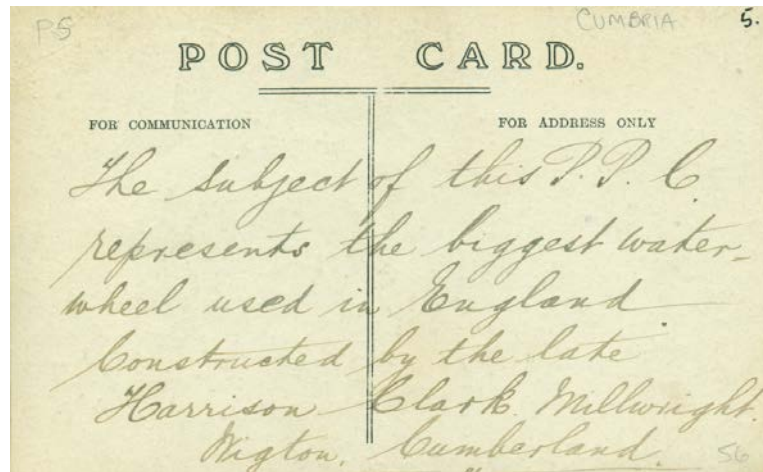 PS
CUMBRIA
5.
POST CARD.
FOR COMMUNICATION
FOR ADDRESS ONLY
The subject of this P. P. C
represents the biggest water-
wheel used in England
Constructed by the late
Harrison Clark. Millwright.
Wigton. Cumberland.
56